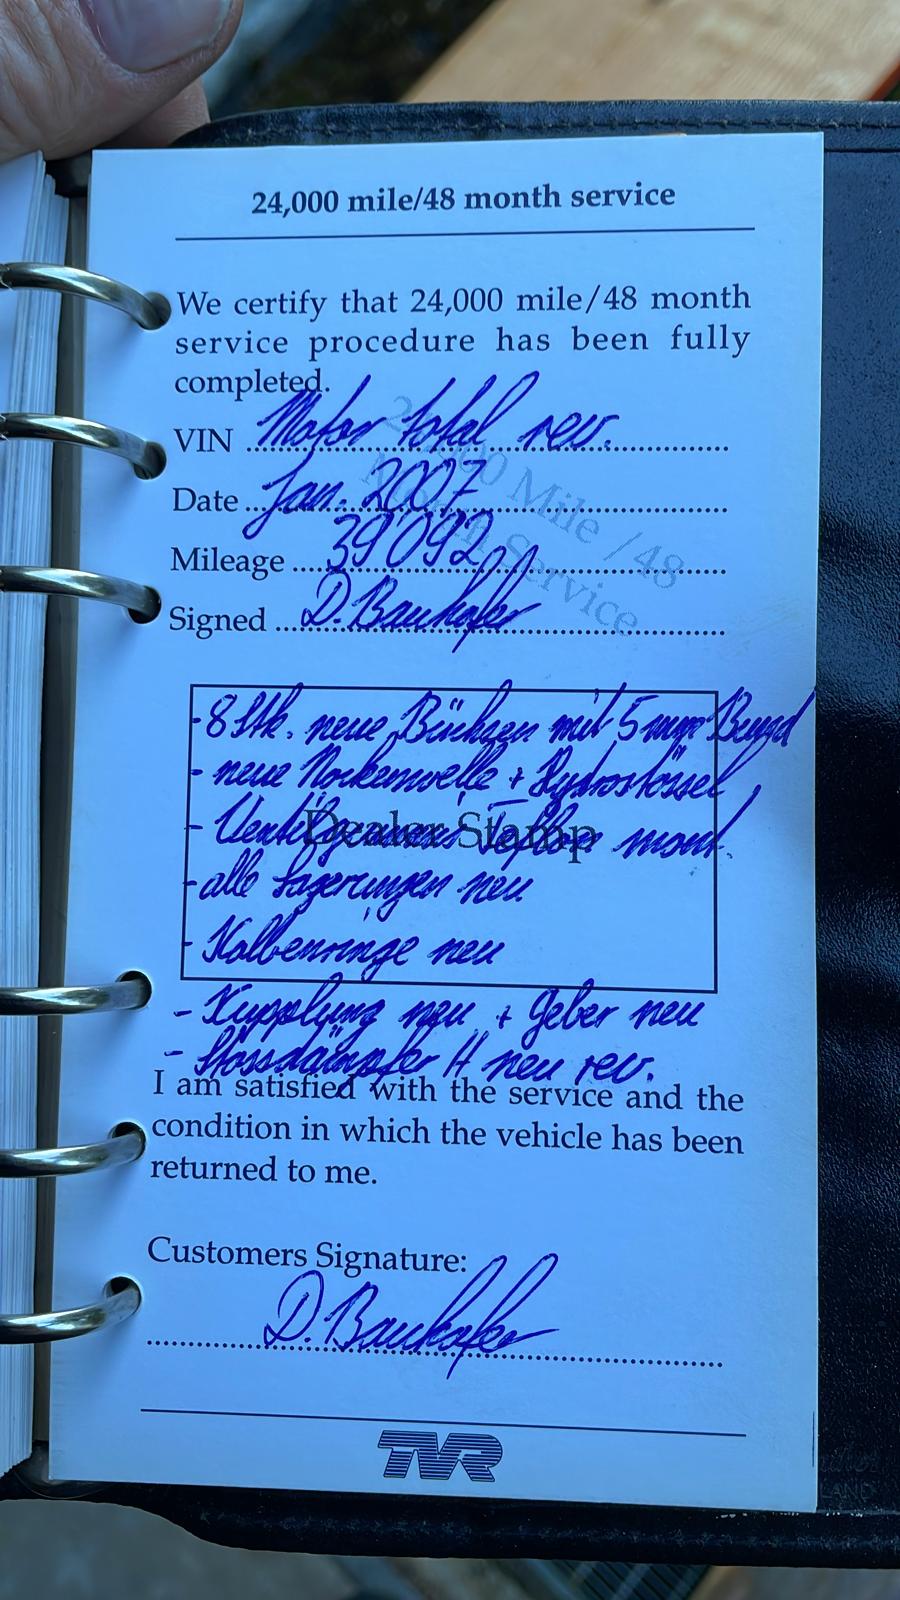 24,000 mile/48 month service
We certify that 24,000 mile/48 month
service procedure has been fully
completed.
VIN Motor total rev.
Date Jan. 2007
Mileage 39'092
Signed D. Bauhofer
24,000 Mile / 48
Month Service
- 8 Stk. neue Büchsen mit 5 mm Bund
- neue Nockenwelle + Hydrostössel
- Ventil Teflon mont.
Dealer Stamp
- alle Lagerungen neu
- Kolbenringe neu
- Kupplung neu + Geber neu
- Stossdämpfer H neu rev.
I am satisfied with the service and the
condition in which the vehicle has been
returned to me.
Customers Signature:
D. Bauhofer
TVR